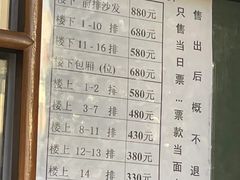 楼下 前排沙发 880元
楼下 1-10 排 680元
楼下 11-16 排 580元
楼下包厢 (位) 680元
楼上 1-2 排 580元
楼上 3-7 排 480元
楼上 8-11 排 430元
楼上 12-13 排 380元
楼上 14 排 330元
售出后概不退
只售当日票…票款当面